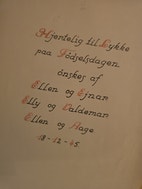 Hjertelig til Lykke
paa Fødselsdagen
ønskes af
Ellen og Ejnar
Elly og Valdemar
Ellen og Aage
13-12-45.